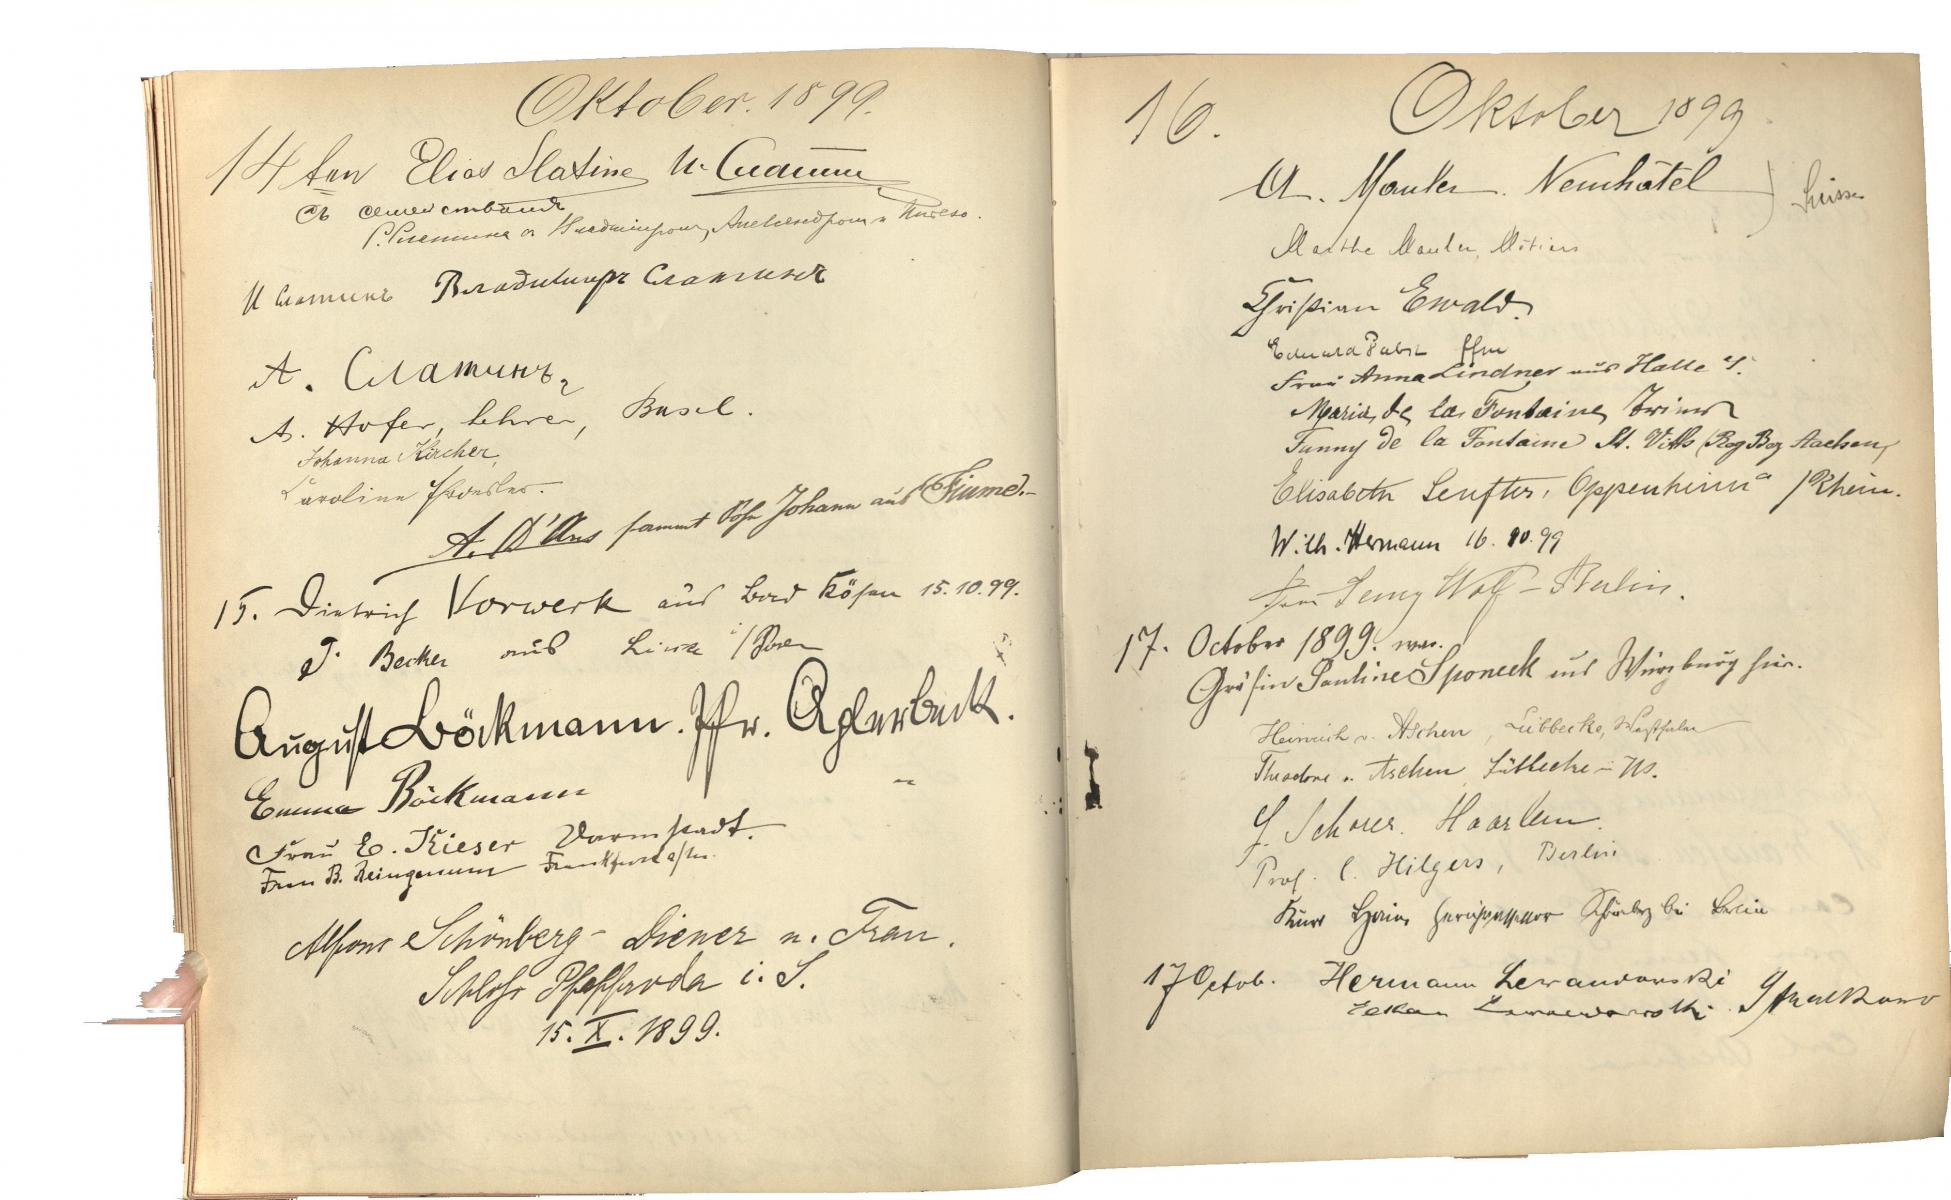 Oktober. 1899.
14ten Elias Slatine И. Слатин
съ семействомъ
И Слатинъ Владимиръ Слатинъ
А. Слатинъ
A. Hofer, Lehrer, Basel.
Johanna Kircher,
Caroline
A. D'Ans sammt Sohn Johann aus Fiume.
15. Dietrich Vorwerk aus Bad Kösen 15.10.99.
J. Becker aus
August Böckmann. Pfr. Aplerbeck.
Emma Böckmann "
Frau E. Kieser Darmstadt.
Frau B. Reinganum Frankfurt a/M.
Alfons Schönberg-Diener u. Frau.
Schloss Pfaffroda i. S.
15. X. 1899.
16. Oktober 1899
A. Mauler. Neuchâtel } Suisse
Marthe Mauler, Môtiers
Christian Ewald.
Eduard Pabst
Frau Anna Lindner aus Halle a/S.
Maria de la Fontaine, Trier
Fanny de la Fontaine St. Vith (Reg Bez Aachen,
Elisabeth Senfter, Oppenheim a/Rhein.
Wilh. Hermann 16. 10. 99
Frau Jenny Wolff - Berlin.
17. October 1899. war
Gräfin Pauline Sponeck aus Würzburg hier.
Heinrich v. Aschen, Lübbecke, Westfalen
Theodore v. Aschen Lübbecke i W.
J. Schorer. Haarlem.
Prof. C. Hilgers, Berlin
Kurt Gerichtsassessor Schöneberg bei Berlin
17 Octob. Hermann Lewandowski
Lewandowski